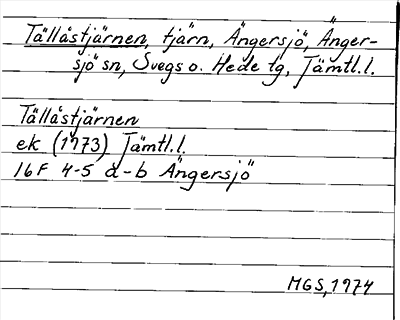 Tällåstjärnen, tjärn, Ängersjö, Änger-
sjö sn, Svegs o. Hede tg, Jämtl.l.
Tällåstjärnen
ek (1973) Jämtl.l.
16F 4-5 a-b Ängersjö
MGS, 1974